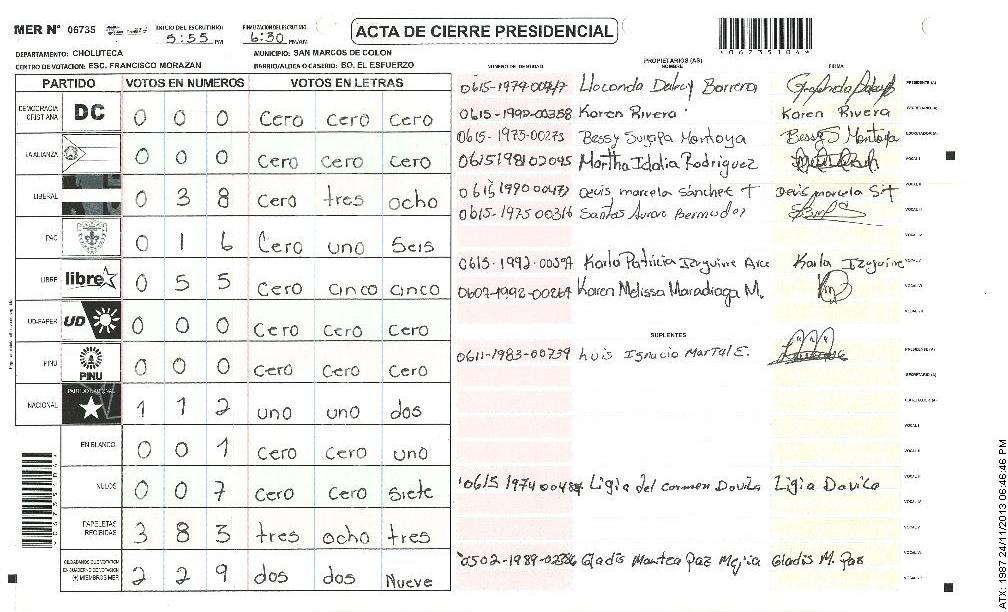 MER N° 06735 INICIO DEL ESCRUTINIO: 5:55 PM FINALIZACION ESCRUTINIO: 6:30 PM/AM
ACTA DE CIERRE PRESIDENCIAL
06735104
DEPARTAMENTO: CHOLUTECA MUNICIPIO: SAN MARCOS DE COLON
CENTRO DE VOTACION: ESC. FRANCISCO MORAZAN BARRIO/ALDEA O CASERIO: BO. EL ESFUERZO
PARTIDO VOTOS EN NUMEROS VOTOS EN LETRAS
DEMOCRACIA CRISTIANA DC 0 0 0 Cero Cero Cero
LA ALIANZA 0 0 0 Cero Cero Cero
LIBERAL 0 3 8 Cero tres ocho
PAC 0 1 6 Cero uno Seis
LIBRE libre 0 5 5 Cero cinco cinco
UD-FAPER UD 0 0 0 Cero Cero Cero
PINU PINU 0 0 0 Cero Cero Cero
NACIONAL PARTIDO NACIONAL 1 1 2 uno uno dos
EN BLANCO 0 0 1 Cero Cero uno
NULOS 0 0 7 Cero Cero Siete
PAPELETAS RECIBIDAS 3 8 3 tres ocho tres
CIUDADANOS QUE VOTARON EN CUADERNO DE VOTACION (+) MIEMBROS MER 2 2 9 dos dos Nueve
PROPIETARIOS (AS)
NUMERO DE IDENTIDAD NOMBRE FIRMA
0615-1979- Barrera PRESIDENTE (A)
0615-1992-00358 Karen Rivera Karen Rivera SECRETARIO (A)
0615-1975-00273 Bessy Suyapa Montoya Bessy S Montoya ESCRUTADOR (A)
0615198102045 Martha Idalia Rodriguez VOCAL I
0615 1990 marcela Sánchez T marcela S.T VOCAL II
0615-1975 00316 Santos Bermudez VOCAL III
VOCAL IV
0615-1992- Karla Patricia Izaguirre Arce Karla Izaguirre VOCAL V
0607-1992-00264 Karen Melissa Maradiaga M. VOCAL VI
SUPLENTES
0611-1983-00739 Luis Ignacio E. PRESIDENTE (A)
SECRETARIO (A)
ESCRUTADOR (A)
VOCAL I
VOCAL II
0615 1974 Ligia del carmen Davila Ligia Davila VOCAL III
VOCAL IV
VOCAL V
0502-1989- Gladis Paz Mejia Gladis M. Paz VOCAL VI
ATX: 1987 24/11/2013 06:46:46 PM